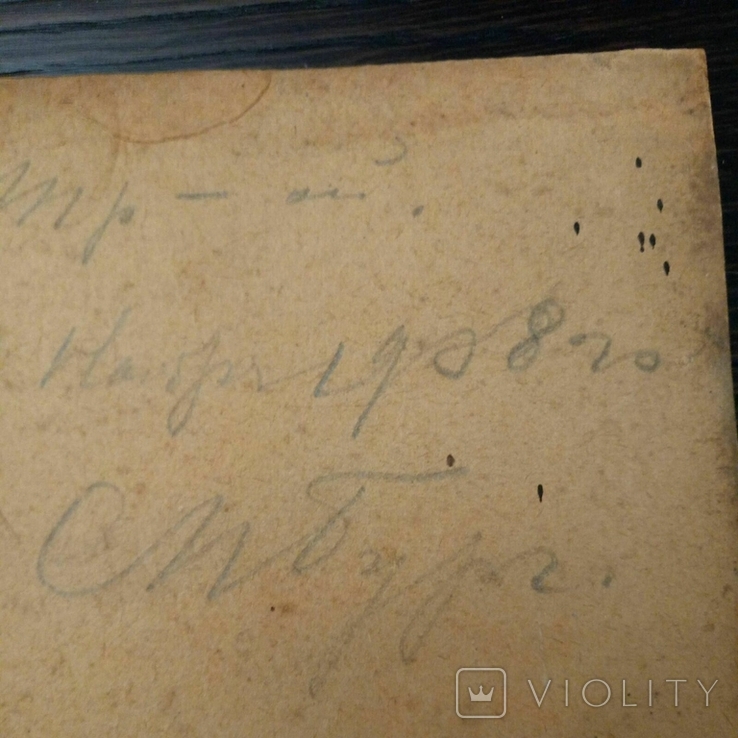 Ноября 1908 го
СПБург.
VIOLITY